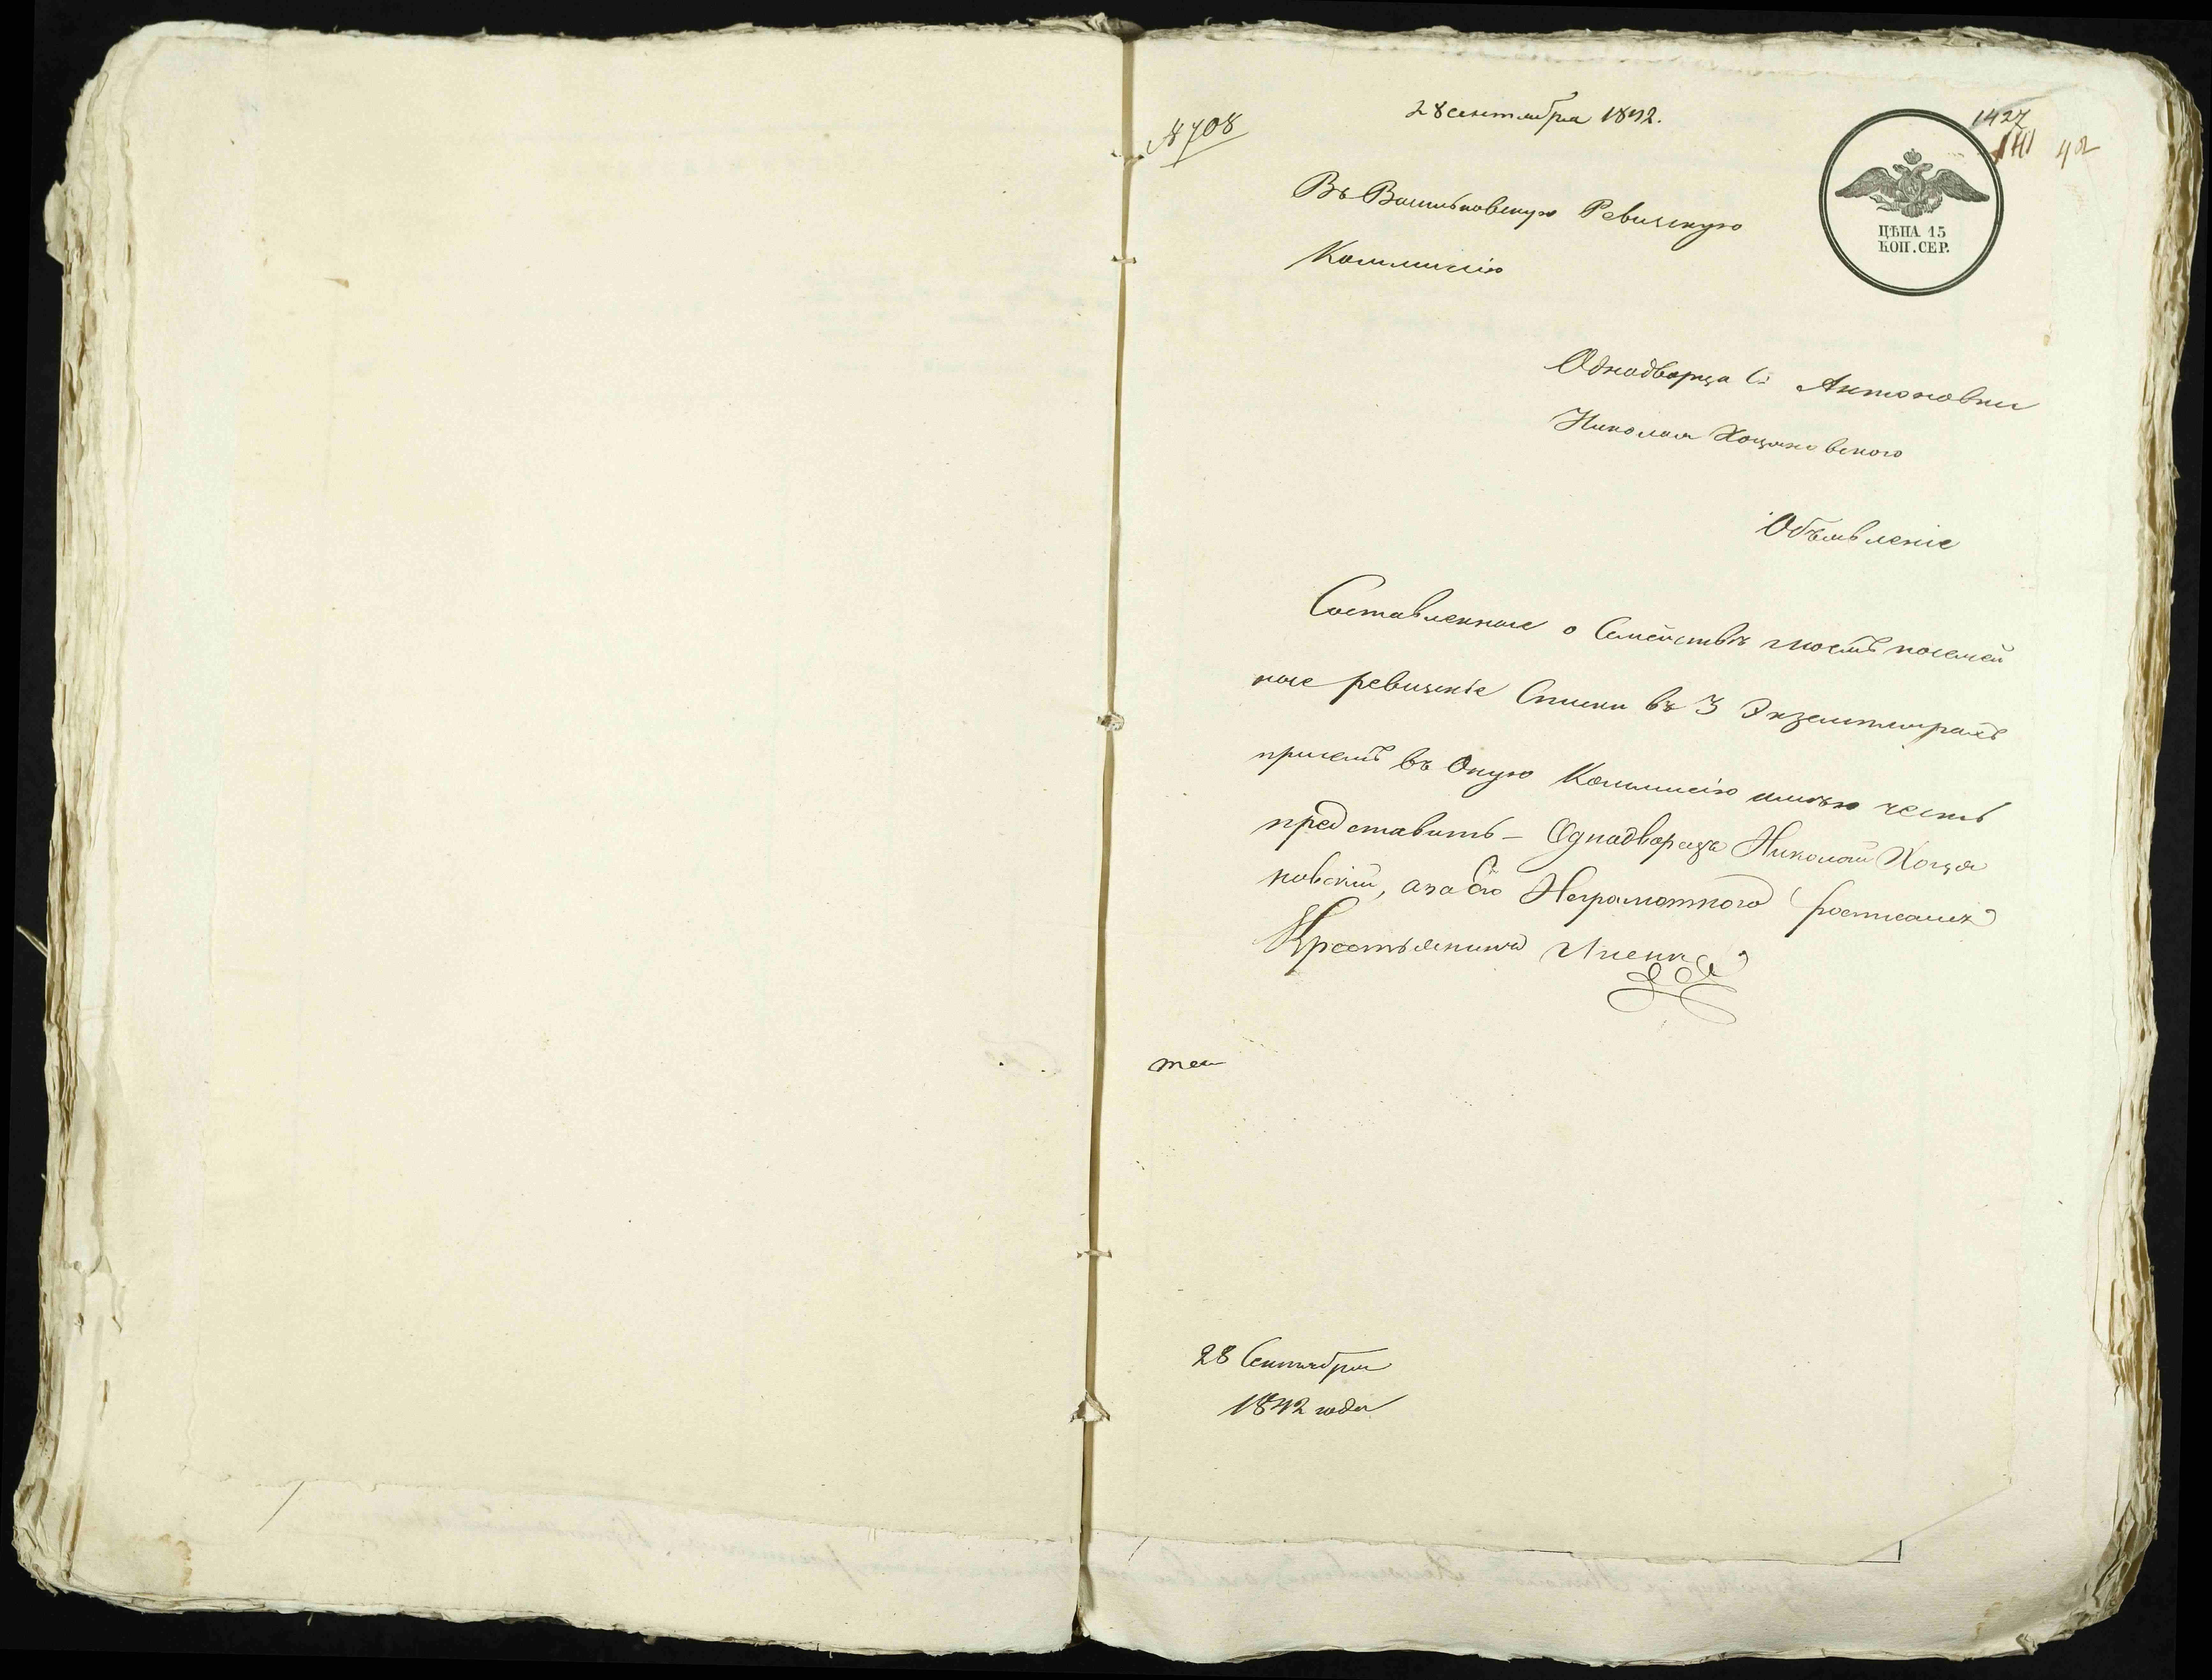 № 708
28 сентября 1842.
1427
141 42
ЦѢНА 15
КОП. СЕР.
Въ Васильковскую Ревизкую
Коммисію
Однодворца С: Антоновки
Николая Хоцяновского
Объявленіе
Составленные о Семействѣ моемъ посемей
ные ревизкіе Списки въ 3 Экземплярахъ
присемъ въ Оную Коммисію имѣю честь
представить – Однодворецъ Николай Хоця
новскій, а за его Неграмотного росписался
Крестьянинъ
28 Сентября
1842 года